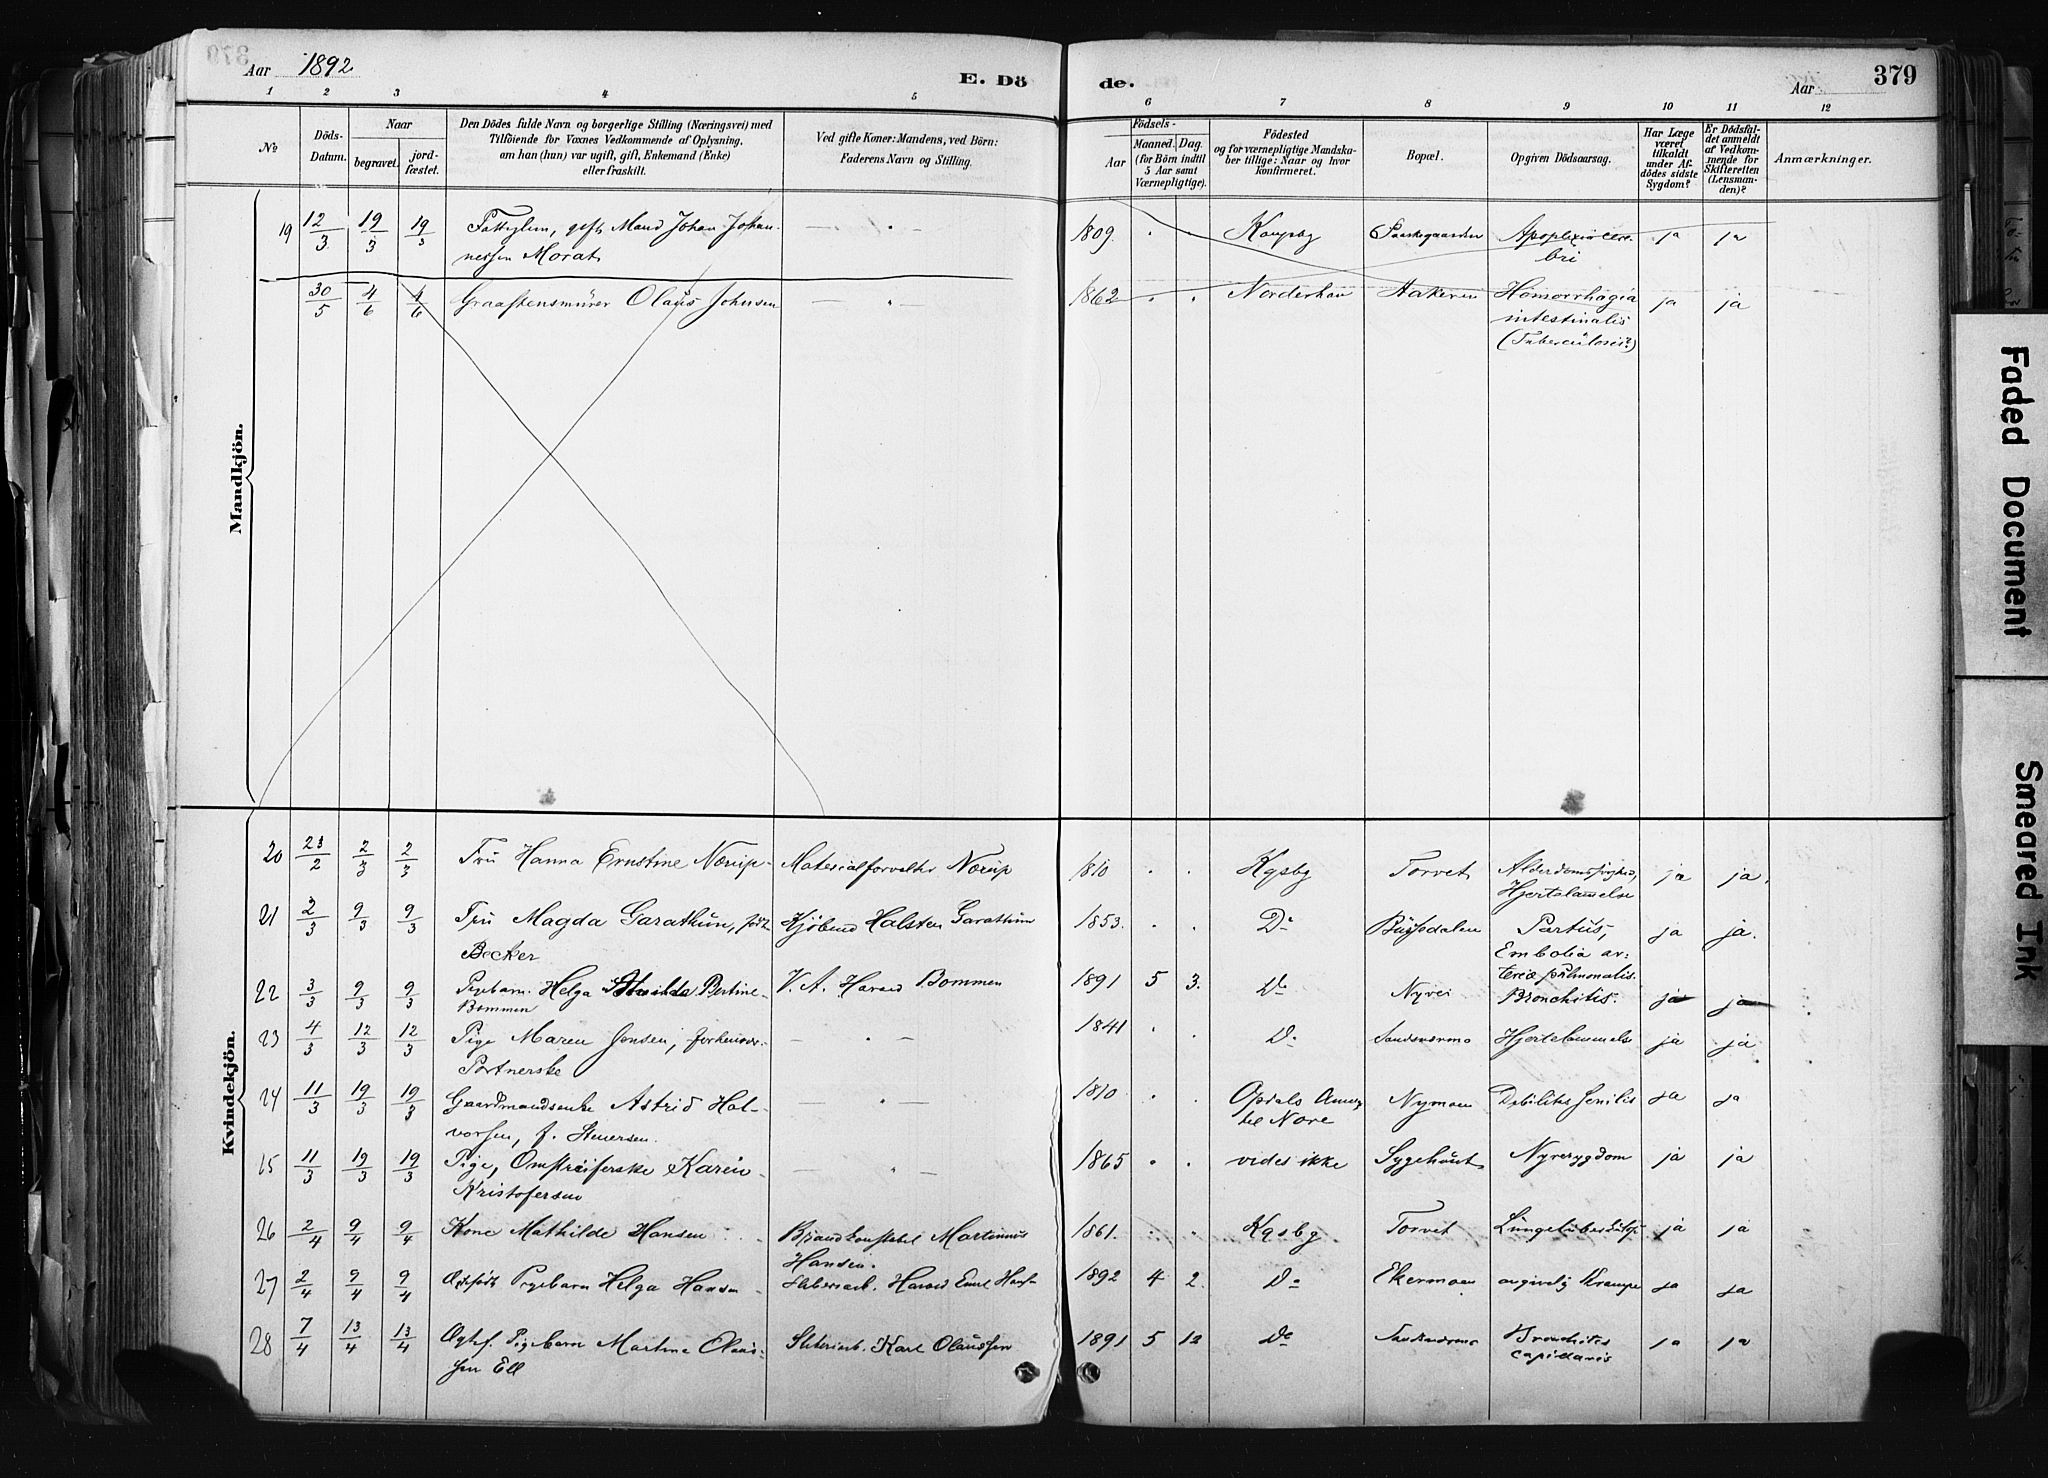 379
Aar 1892
E. Dö
de.
Aar
1 2 3 4 5 6 7 8 9 10 11 12
No
Döds-
Datum.
Naar
begravet.
jord-
fæstet.
Den Dödes fulde Navn og borgerlige Stilling (Næringsvei) med
Tilföiende for Voxnes Vedkommende af Oplysning,
om han (hun) var ugift, gift, Enkemand (Enke)
eller fraskilt.
Ved gifte Koner: Mandens, ved Börn:
Faderens Navn og Stilling.
Födsels-
Aar
Maaned. Dag.
(for Börn indtil
5 Aar samt
Værnepligtige).
Födested
og for værnepligtige Mandska-
ber tillige: Naar og hvor
konfirmeret.
Bopæl.
Opgiven Dödsaarsag.
Har Læge
været
tilkaldt
under Af-
dödes sidste
Sygdom?
Er Dödsfal-
det anmeldt
af Vedkom-
mende for
Skifteretten
(Lensman-
den)?
Anmærkninger.
Mandkjön.
19 12/3 19/3 19/3 Fattiglem, gift Mand Johan Johan- 1809. Kongsby ja ja
nessen Morat bri
30/5 4/6 4/6 Graastensmürer Olaüs Johnsen 1862 Norderhov Aakeren Hæmorrhagia ja ja
intestinalis
(Tuberculosis?)
Kvindekjön.
20 23/2 2/3 2/3 Frü Hanna Ernstine Nærup Materialforvalter Nærup 1810 Kgsby Torvet Alderdomssvaghed, ja ja.
Hjertelammelse
21 2/3 9/3 9/3 Frü Magda Garathün, født Kjøbmd Halsten Garathün 1853. Do Bussedalen Partüs, ja ja.
Becker Embolia ar-
teriæ pülmonalis.
22 3/3 9/3 9/3 Pigebarn Helga Bertine V. A. Harald Bommen 1891 5 3. Do Nyvei Bronchitis. ja ja
Bommen
23 4/3 12/3 12/3 Pige Maren Jensen, forhenvær. 1841 Do Sandsværmo Hjertelammelse ja ja
Portnerske
24 11/3 19/3 19/3 Gaardmandsenke Astrid Hal- 1810. Opdals Annex Nymoen Debilitas senilis ja ja
vorsen, f. Steversen. til Nore
25 11/3 19/3 19/3 Pige, Omstreiferske Karen 1865 vides ikke Sygehüset Nyresygdom ja ja
Kristofersen
26 2/4 9/4 9/4 Kone Mathilde Hansen Brandkonstabel Martinius 1861. Kgsby Torvet Lüngetüberkül. ja ja
Hansen.
27 2/4 9/4 9/4 Ægtefødt Pigebarn Helga Hansen Harald Emil Hansen 1892 4 2. Do Ekermoen angivelig Krampe ja ja
28 7/4 13/4 13/4 Ægtef. Pigebarn Martine Olaüs- Sliberiarb. Karl Olaüssen 1891 5 12 Do Sandsværmo Bronchites ja ja
sen Ell capillaris
Faded Document
Smeared Ink